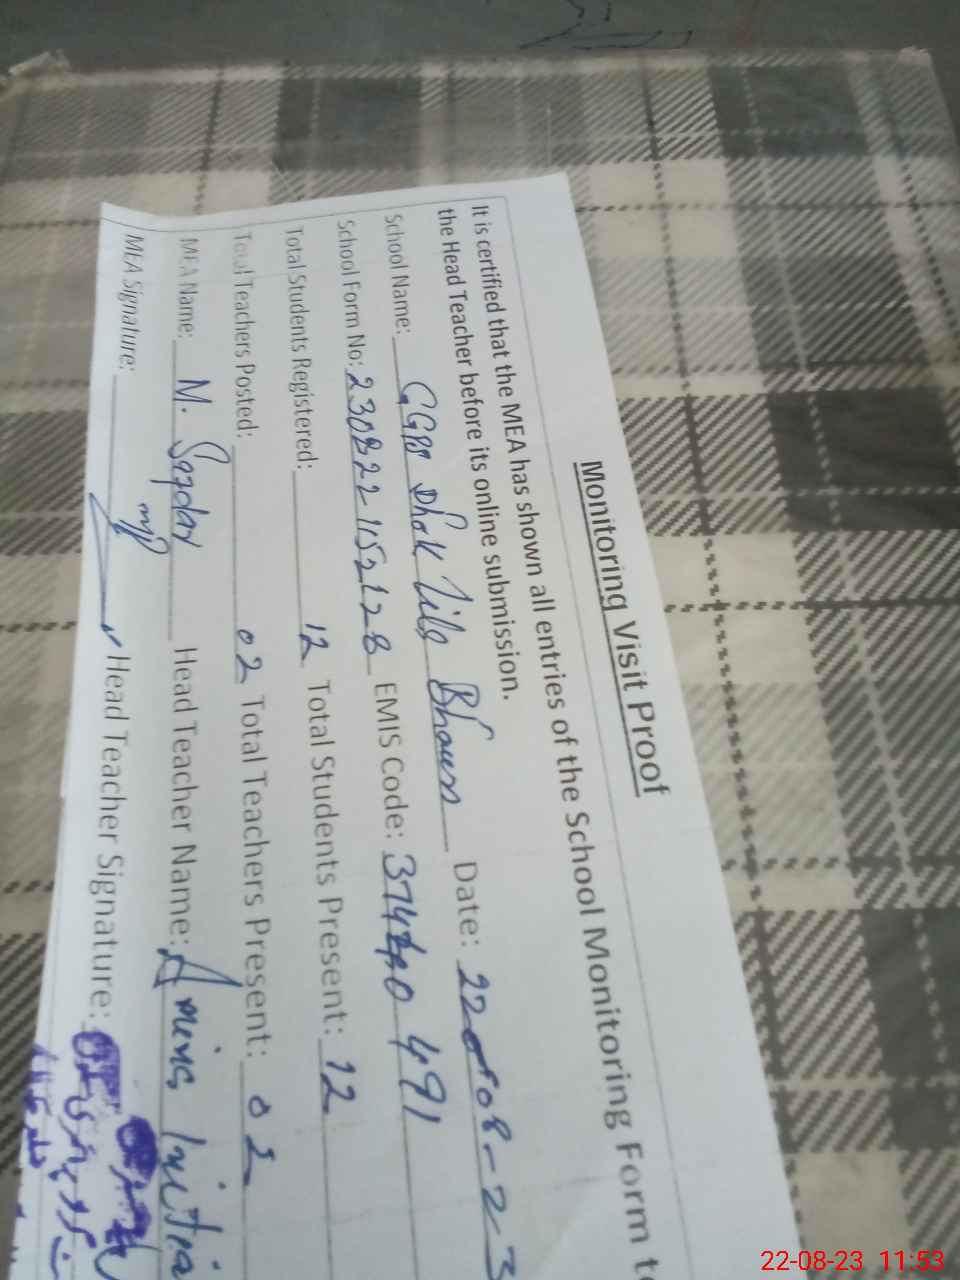 Monitoring Visit Proof
It is certified that the MEA has shown all entries of the School Monitoring Form to
the Head Teacher before its online submission.
School Name: GGPS Dhok Date: 22-08-23
School Form No: EMIS Code: 491
Total Students Registered: 12 Total Students Present: 12
Total Teachers Posted: 02 Total Teachers Present: 02
MEA Name: M. Head Teacher Name: Amina
MEA Signature: Head Teacher Signature:
22-08-23 11:53